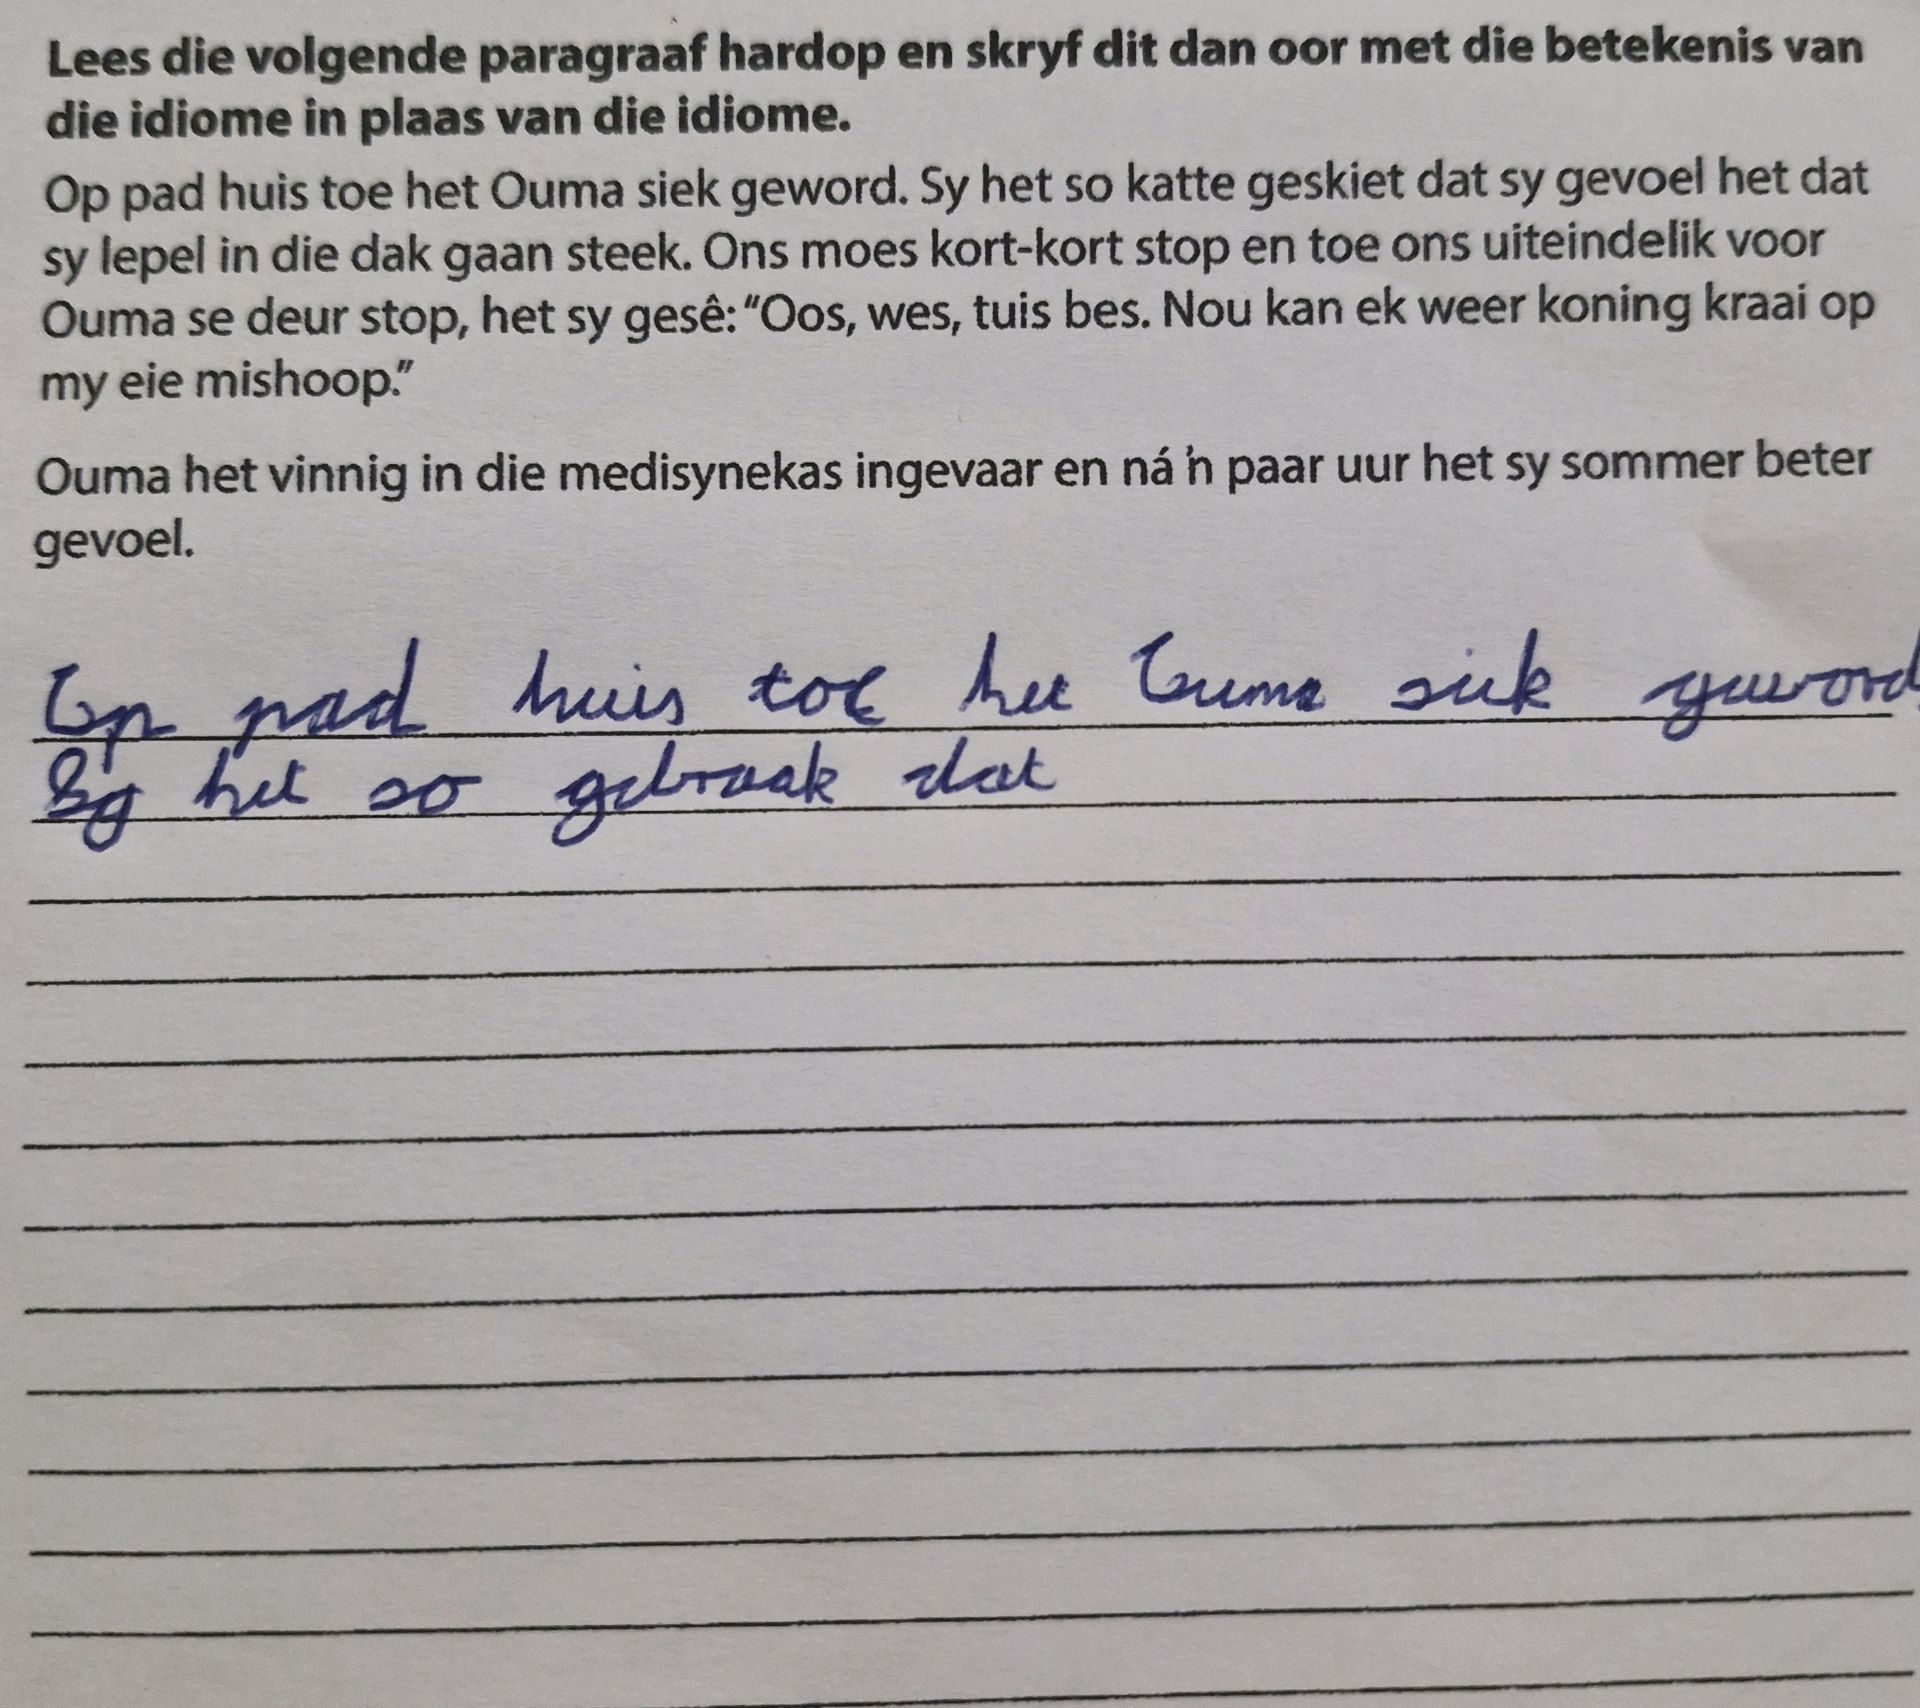 Lees die volgende paragraaf hardop en skryf dit dan oor met die betekenis van
die idiome in plaas van die idiome.
Op pad huis toe het Ouma siek geword. Sy het so katte geskiet dat sy gevoel het dat
sy lepel in die dak gaan steek. Ons moes kort-kort stop en toe ons uiteindelik voor
Ouma se deur stop, het sy gesê: “Oos, wes, tuis bes. Nou kan ek weer koning kraai op
my eie mishoop.”
Ouma het vinnig in die medisynekas ingevaar en ná ŉ paar uur het sy sommer beter
gevoel.
Op pad huis toe het Ouma siek geword.
Sy het so gebraak dat